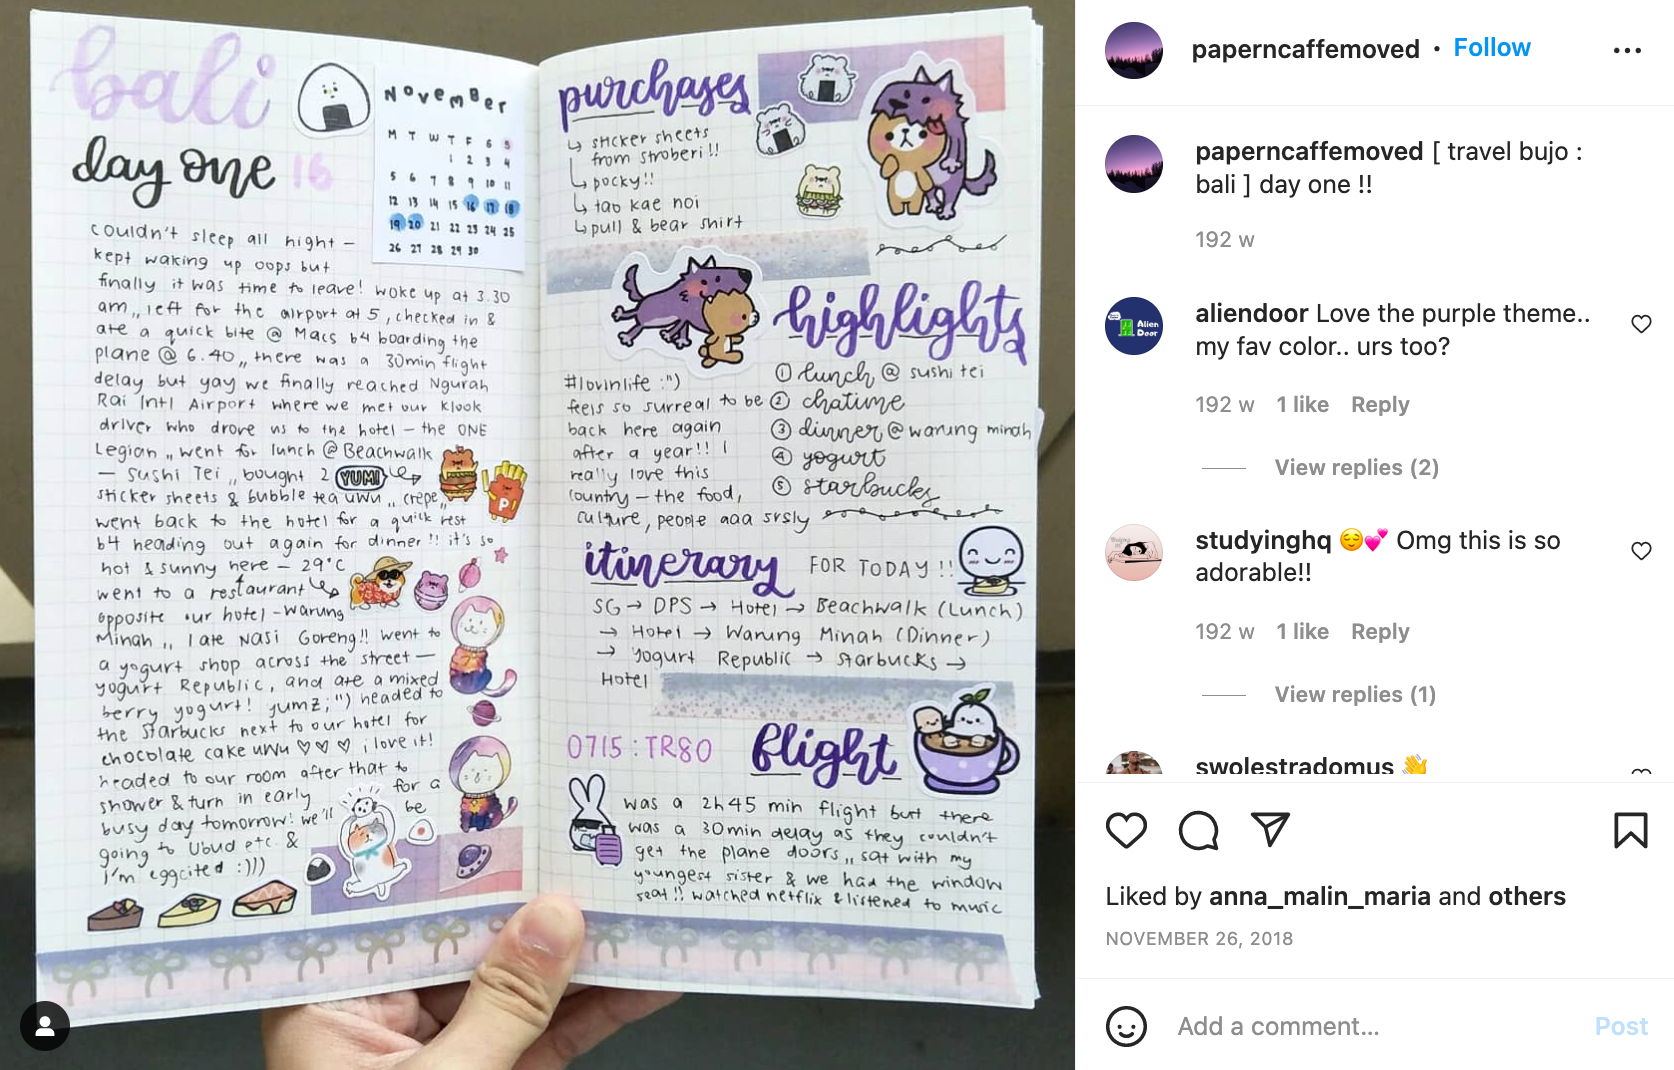 bali
day one 16
November
M T W T F S S
1 2 3 4
5 6 7 8 9 10 11
12 13 14 15 16 17 18
19 20 21 22 23 24 25
26 27 28 29 30
couldn't sleep all night —
kept waking up oops but
finally it was time to leave! woke up at 3.30
am,, left for the airport at 5, checked in &
ate a quick bite @ Macs b4 boarding the
plane @ 6.40,, there was a 30min flight
delay but yay we finally reached Ngurah
Rai Intl Airport where we met our klook
driver who drove us to the hotel — the ONE
Legian,, went for lunch @ Beachwalk
— Sushi Tei,, bought 2 YUM!
sticker sheets & bubble tea uwu,, crepe,,
went back to the hotel for a quick rest
b4 heading out again for dinner!! it's so
hot & sunny here — 29°C
went to a restaurant
opposite our hotel - Warung
Minah,, I ate Nasi Goreng!! went to
a yogurt shop across the street —
yogurt Republic, and ate a mixed
berry yogurt! yumz;") headed to
the Starbucks next to our hotel for
chocolate cake uwu ♡ ♡ ♡ i love it!
headed to our room after that to
shower & turn in early for a
busy day tomorrow! we'll be
going to Ubud etc. &
I'm eggcited :)))
P
purchases
↳ sticker sheets
from stroberi!!
↳ pocky!!
↳ tao kae noi
↳ pull & bear shirt
highlights
① lunch @ sushi tei
② chatime
③ dinner @ warung minah
④ yogurt
⑤ starbucks
#lovinlife :")
feels so surreal to be
back here again
after a year!! I
really love this
country — the food,
culture, people aaa srsly
itinerary FOR TODAY!!
SG → DPS → Hotel → Beachwalk (Lunch)
→ Hotel → Warung Minah (Dinner)
→ Yogurt Republic → Starbucks →
Hotel
0715 : TR80 flight
was a 2h45 min flight but there
was a 30min delay as they couldn't
get the plane doors,, sat with my
youngest sister & we had the window
seat!! watched netflix & listened to music
paperncaffemoved • Follow
paperncaffemoved [ travel bujo :
bali ] day one !!
192 w
aliendoor Love the purple theme..
my fav color.. urs too?
192 w 1 like Reply
View replies (2)
studyinghq 😌💕 Omg this is so
adorable!!
192 w 1 like Reply
View replies (1)
swolestradomus 👋
Alien
Door
Liked by anna_malin_maria and others
NOVEMBER 26, 2018
Add a comment...
Post